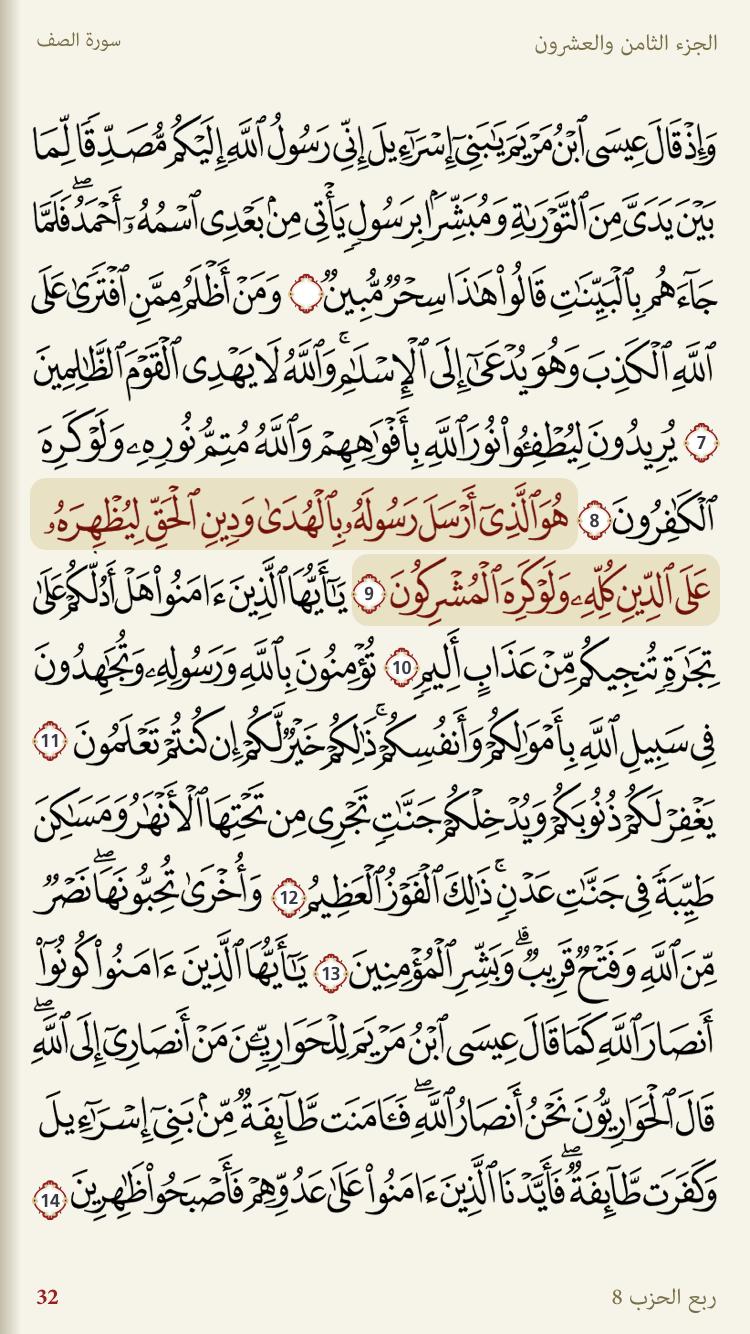 الجزء الثامن والعشرون
سورة الصف
وَإِذْ قَالَ عِيسَى ٱبْنُ مَرْيَمَ يَـٰبَنِىٓ إِسْرَٰٓءِيلَ إِنِّى رَسُولُ ٱللَّهِ إِلَيْكُم مُّصَدِّقًا لِّمَا
بَيْنَ يَدَىَّ مِنَ ٱلتَّوْرَىٰةِ وَمُبَشِّرًۢا بِرَسُولٍ يَأْتِى مِنۢ بَعْدِى ٱسْمُهُۥٓ أَحْمَدُ ۖ فَلَمَّا
جَآءَهُم بِٱلْبَيِّنَـٰتِ قَالُوا۟ هَـٰذَا سِحْرٌ مُّبِينٌ وَمَنْ أَظْلَمُ مِمَّنِ ٱفْتَرَىٰ عَلَى
ٱللَّهِ ٱلْكَذِبَ وَهُوَ يُدْعَىٰٓ إِلَى ٱلْإِسْلَـٰمِ ۚ وَٱللَّهُ لَا يَهْدِى ٱلْقَوْمَ ٱلظَّـٰلِمِينَ
7 يُرِيدُونَ لِيُطْفِـُٔوا۟ نُورَ ٱللَّهِ بِأَفْوَٰهِهِمْ وَٱللَّهُ مُتِمُّ نُورِهِۦ وَلَوْ كَرِهَ
ٱلْكَـٰفِرُونَ 8 هُوَ ٱلَّذِىٓ أَرْسَلَ رَسُولَهُۥ بِٱلْهُدَىٰ وَدِينِ ٱلْحَقِّ لِيُظْهِرَهُۥ
عَلَى ٱلدِّينِ كُلِّهِۦ وَلَوْ كَرِهَ ٱلْمُشْرِكُونَ 9 يَـٰٓأَيُّهَا ٱلَّذِينَ ءَامَنُوا۟ هَلْ أَدُلُّكُمْ عَلَىٰ
تِجَـٰرَةٍ تُنجِيكُم مِّنْ عَذَابٍ أَلِيمٍ 10 تُؤْمِنُونَ بِٱللَّهِ وَرَسُولِهِۦ وَتُجَـٰهِدُونَ
فِى سَبِيلِ ٱللَّهِ بِأَمْوَٰلِكُمْ وَأَنفُسِكُمْ ۚ ذَٰلِكُمْ خَيْرٌ لَّكُمْ إِن كُنتُمْ تَعْلَمُونَ 11
يَغْفِرْ لَكُمْ ذُنُوبَكُمْ وَيُدْخِلْكُمْ جَنَّـٰتٍ تَجْرِى مِن تَحْتِهَا ٱلْأَنْهَـٰرُ وَمَسَـٰكِنَ
طَيِّبَةً فِى جَنَّـٰتِ عَدْنٍ ۚ ذَٰلِكَ ٱلْفَوْزُ ٱلْعَظِيمُ 12 وَأُخْرَىٰ تُحِبُّونَهَا ۖ نَصْرٌ
مِّنَ ٱللَّهِ وَفَتْحٌ قَرِيبٌ ۗ وَبَشِّرِ ٱلْمُؤْمِنِينَ 13 يَـٰٓأَيُّهَا ٱلَّذِينَ ءَامَنُوا۟ كُونُوٓا۟
أَنصَارَ ٱللَّهِ كَمَا قَالَ عِيسَى ٱبْنُ مَرْيَمَ لِلْحَوَارِيِّـۧنَ مَنْ أَنصَارِىٓ إِلَى ٱللَّهِ ۖ
قَالَ ٱلْحَوَارِيُّونَ نَحْنُ أَنصَارُ ٱللَّهِ ۖ فَـَٔامَنَت طَّآئِفَةٌ مِّنۢ بَنِىٓ إِسْرَٰٓءِيلَ
وَكَفَرَت طَّآئِفَةٌ ۖ فَأَيَّدْنَا ٱلَّذِينَ ءَامَنُوا۟ عَلَىٰ عَدُوِّهِمْ فَأَصْبَحُوا۟ ظَـٰهِرِينَ 14
ربع الحزب 8
32